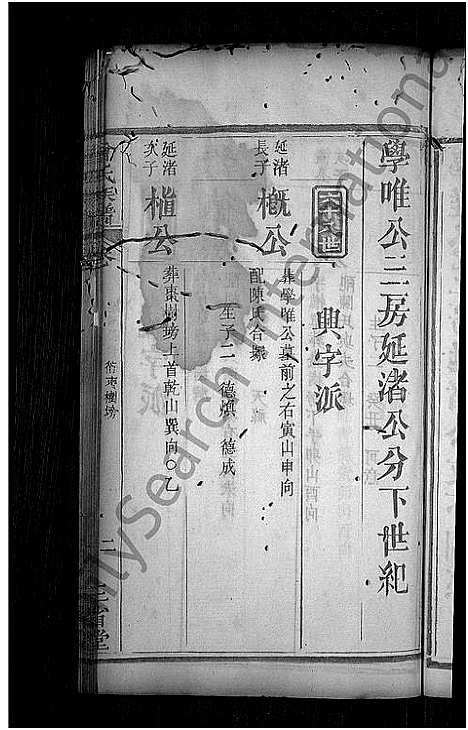 學唯公二房延渚公分下世紀
六十八世
興字派
延渚長子
概公
葬學唯公墓前之右寅山申向
配陳氏合墓
生子二 德熉 德成
延渚次子
楦公
葬棗樹塝上首乾山巽向〇乙
竹棗樹塝
二
FamilySearch International